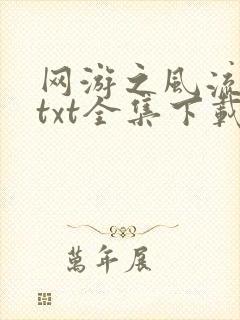 网游之风流
txt全集下载
萬年展